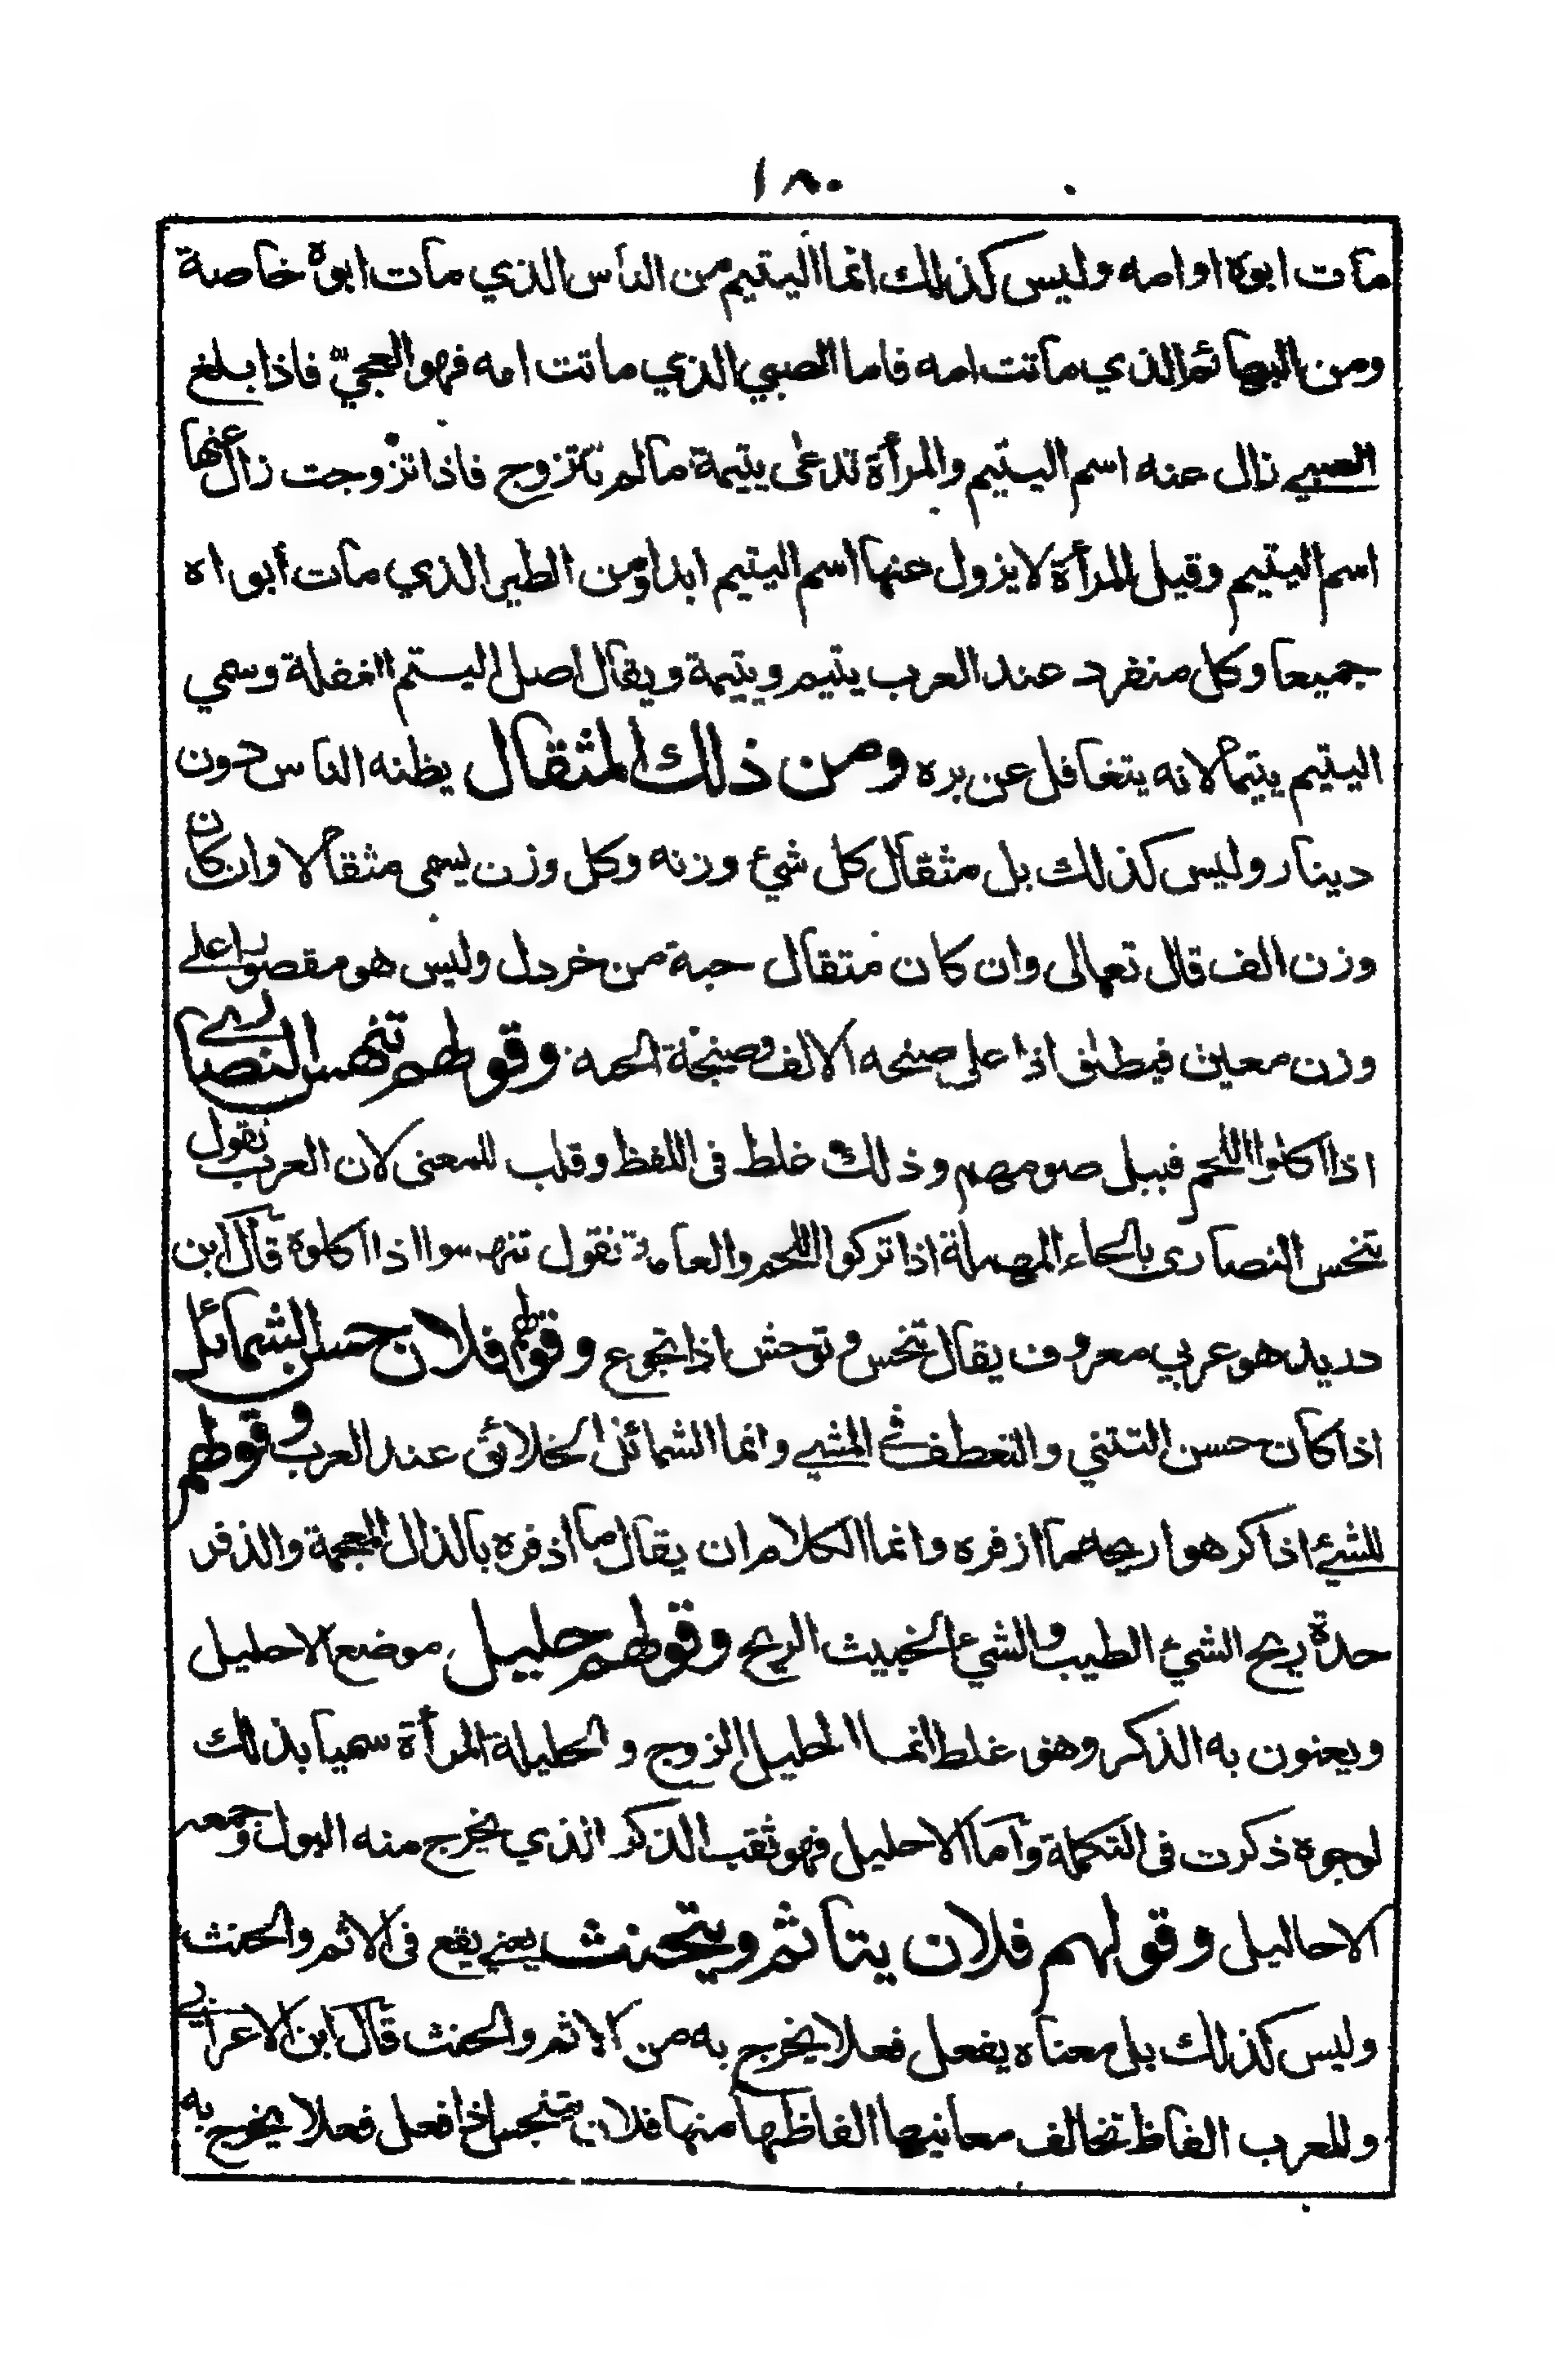 ١٨٠
مات ابوه او امه وليس كذلك انما اليتيم من الناس الذي مات ابوه خاصة
ومن البهائم الذي ماتت امه فاما الصبي الذي ماتت امه فهو العجيّ فاذا بلغ
الصبي زال عنه اسم اليتيم والمرأة تدعى يتيمة مالم تتزوج فاذا تزوجت زال عنها
اسم اليتيم وقيل المرأة لا يزول عنها اسم اليتيم ابدا ومن الطير الذي مات أبواه
جميعا وكل منفرد عند العرب يتيم ويتيمة ويقال اصل اليتم الغفلة وسمي
اليتيم يتيما لانه يتغافل عن بره ومن ذلك المثقال يظنه الناس دون
دينار وليس كذلك بل مثقال كل شيء وزنه وكل وزن يسمى مثقالا وان كان
وزن الف قال تعالى وان كان مثقال حبة من خردل وليس هو مقصورا على
وزن معين فيطلق اذا على صنجه الالف وصنجة الحمه وقولهم تنهس النصارى
اذا اكلوا اللحم قبيل صومهم وذلك خلط فى اللفظ وقلب للمعنى لان العرب تقول
تنحس النصارى بالحاء المهملة اذا تركوا اللحم والعامة تقول تنهسوا اذا اكلوه قال ابن
دريد هو عربي معروف يقال تنحس وتوحش اذا تجوع وقولهم فلان حسن الشمائل
اذا كان حسن التثني والتعطف في المشي وانما الشمائل الخلائق عند العرب وقولهم
للشيء اذا كرهوا ريحه ما ازفره وانما الكلام ان يقال ما اذفره بالذال المعجمة والذفر
حدة ريح الشيء الطيب والشيء الخبيث الريح وقولهم حليل موضع الاحليل
ويعنون به الذكر وهو غلط انما الحليل الزوج والحليلة المرأة سميا بذلك
لوجوه ذكرت فى التكملة وأما الاحليل فهو ثقب الذكر الذي يخرج منه البول وجمعه
الاحاليل وقولهم فلان يتأثم ويتحنث يعني يقع فى الاثم والحنث
وليس كذلك بل معناه يفعل فعلا يخرج به من الاثم والحنث قال ابن الاعرابي
وللعرب الفاظ تخالف معانيها الفاظها منها فلان يتنجس اذا فعل فعلا يخرج به